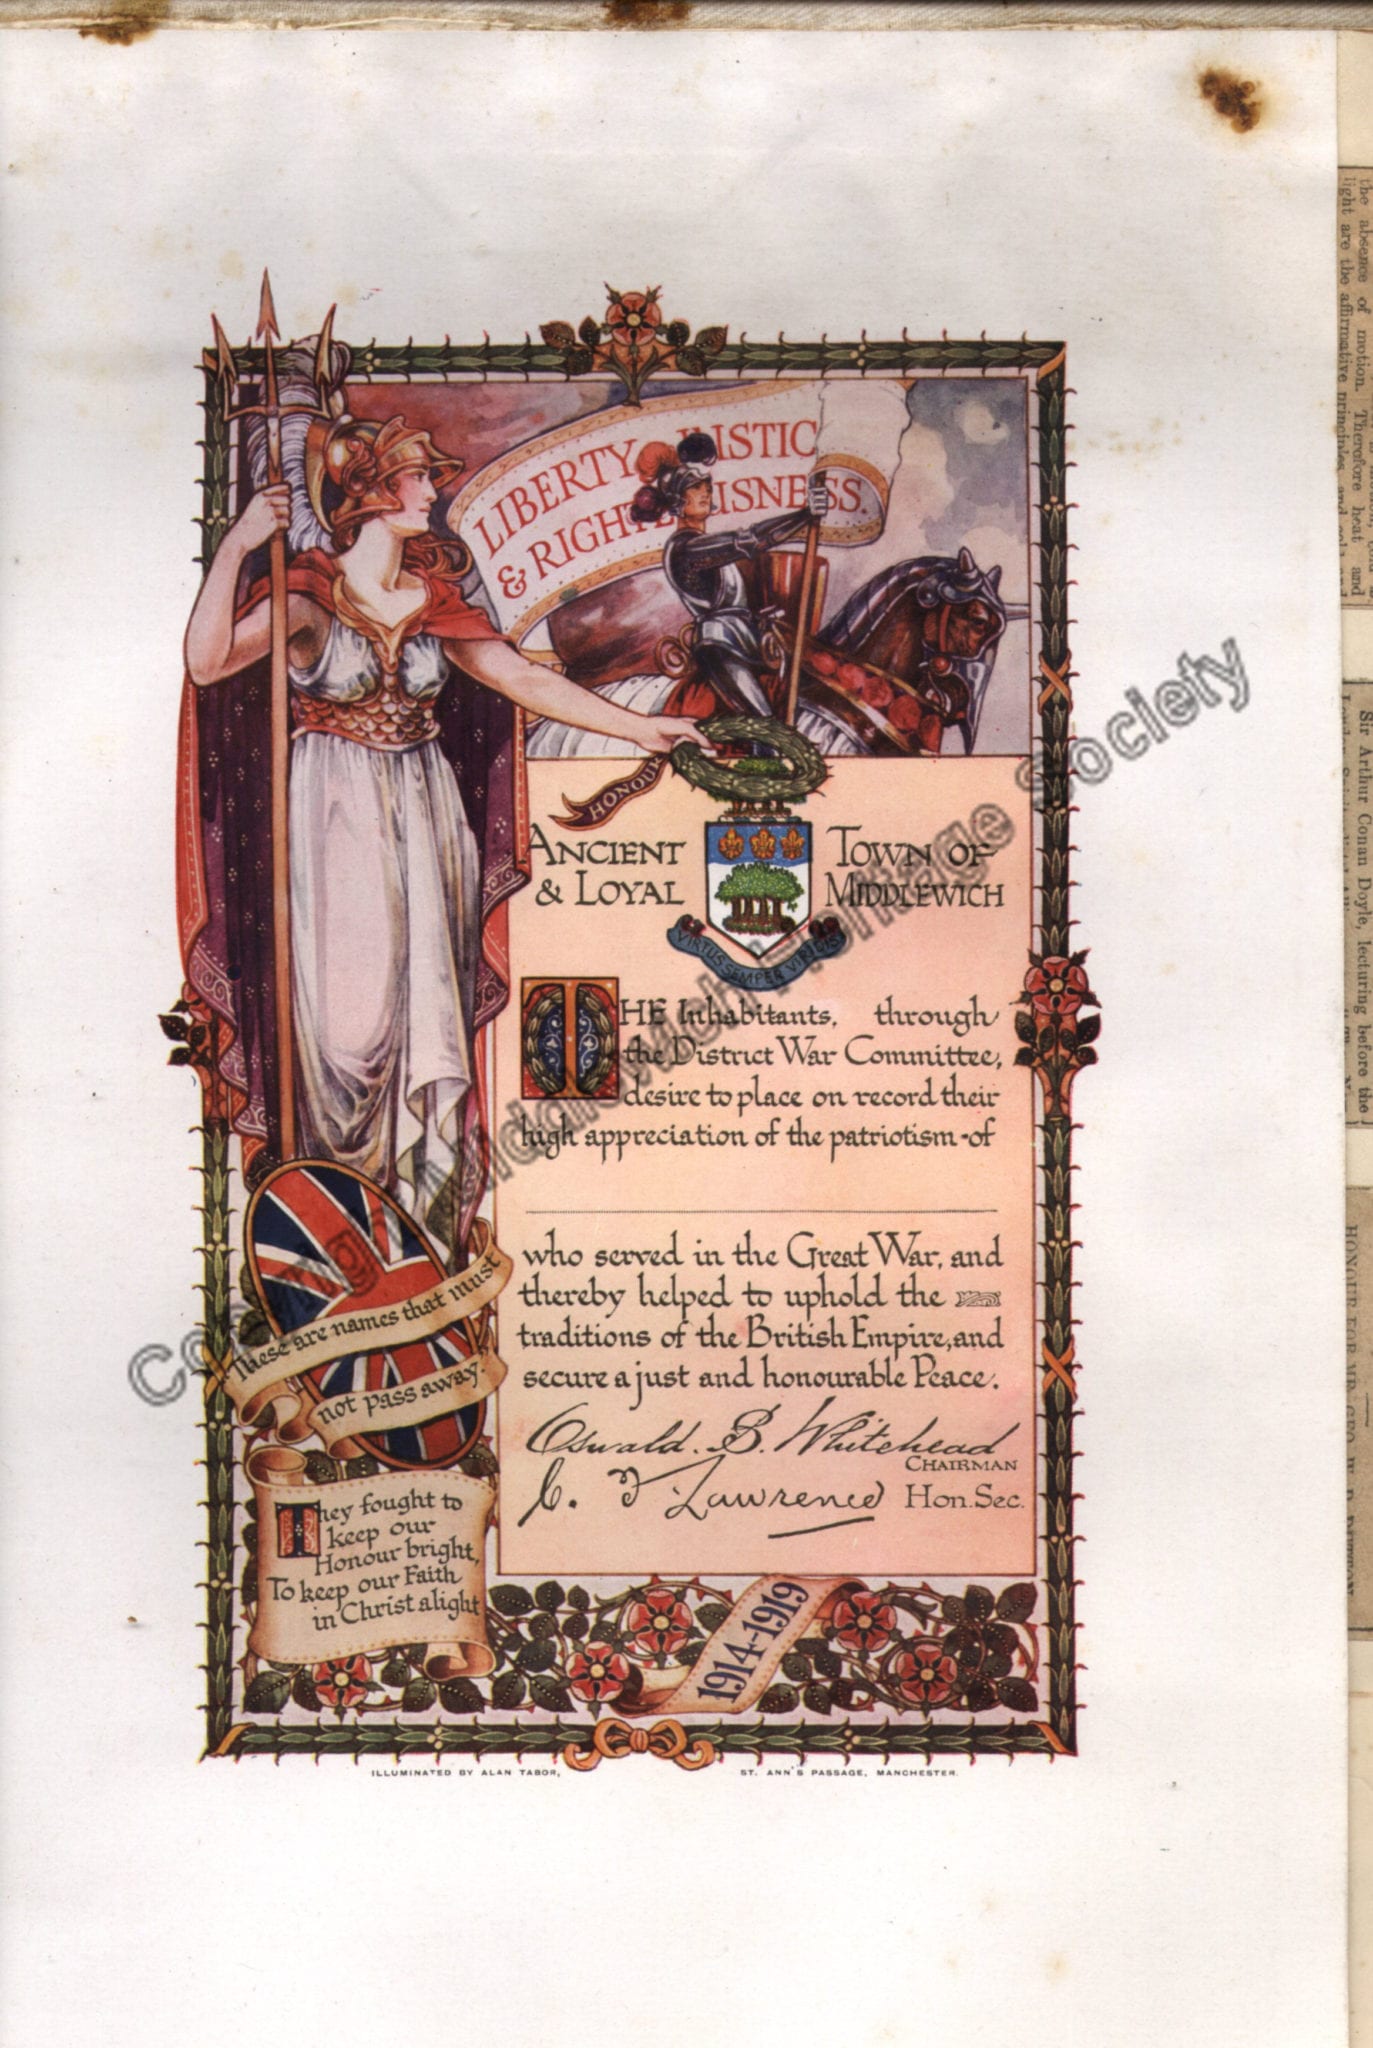 LIBERTY JUSTIC
& RIGHTEOUSNESS.
HONOUR
ANCIENT & LOYAL
TOWN OF MIDDLEWICH
VIRTUS SEMPER VIRIDIS
THE Inhabitants, through
the District War Committee,
desire to place on record their
high appreciation of the patriotism of
who served in the Great War, and
thereby helped to uphold the
traditions of the British Empire, and
secure a just and honourable Peace.
Oswald. B. Whitehead
CHAIRMAN
C. F. Lawrence Hon. Sec.
"These are names that must
not pass away."
They fought to
keep our
Honour bright,
To keep our Faith
in Christ alight
1914-1919
ILLUMINATED BY ALAN TABOR, ST. ANN'S PASSAGE, MANCHESTER.
Copyright Middlewich Heritage Society
the absence of motion. Therefore heat and
light are the affirmative principles and cold and
Sir Arthur Conan Doyle, lecturing before the
HONOUR FOR MR. GEO. W. P. DUTTON